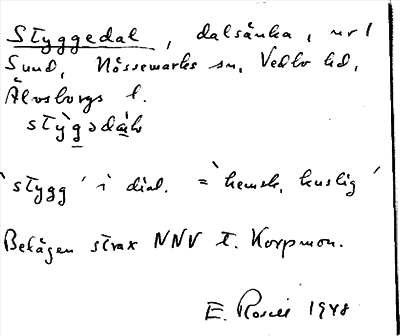 Styggedal, dalsänka, nr 1
Sund, Nössemarks sn, Vedbo hd,
Älvsborgs l.
'stygg' i dial. = 'hemsk, kuslig'
Belägen strax NNV t. Korpmon.
E. 1948